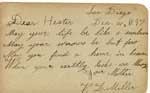 San Diego
Dear Hester Dec. 10, 1887
May your life be like a sunbeam
May your sorrows be but few
May you find a home in heaven
When your earthly
Your Mother
Miller